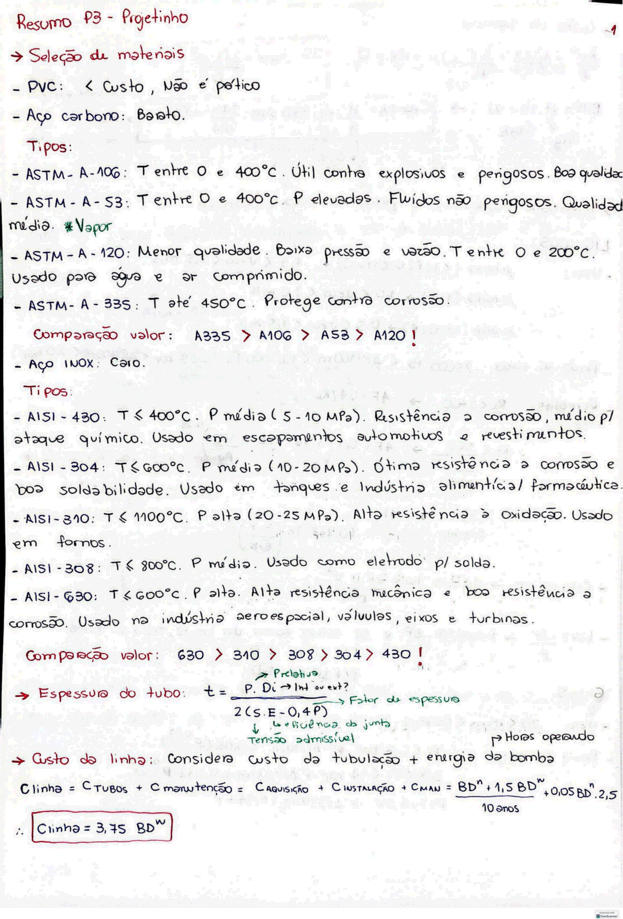 Resumo P3 - Projetinho
-1
→ Seleção de materiais
- PVC: < Custo, Não é pático
- Aço carbono: Barato.
Tipos:
- ASTM-A-106: T entre 0 e 400°C. Útil contra explosivos e perigosos. Boa qualidad
- ASTM-A-53: T entre 0 e 400°C. P elevadas. Fluídos não perigosos. Qualidad
média. *Vapor
- ASTM-A-120: Menor qualidade. Baixa pressão e vazão. T entre 0 e 200°C.
Usado para água e ar comprimido.
- ASTM-A-335: T até 450°C. Protege contra corrosão.
Comparação valor: A335 > A106 > A53 > A120!
- Aço INOX: Caro.
Tipos:
- AISI-430: T ≤ 400°C. P média (5-10 MPa). Resistência a corrosão, médio p/
ataque químico. Usado em escapamentos automotivos e revestimentos.
- AISI-304: T ≤ 600°C. P média (10-20 MPa). Ótima resistência a corrosão e
boa soldabilidade. Usado em tanques e Indústria alimentícia/farmacêutica.
- AISI-310: T ≤ 1100°C. P alta (20-25 MPa). Alta resistência à oxidação. Usado
em fornos.
- AISI-308: T ≤ 800°C. P média. Usado como eletrodo p/ solda.
- AISI-630: T ≤ 600°C. P alta. Alta resistência mecânica e boa resistência a
corrosão. Usado na indústria aeroespacial, válvulas, eixos e turbinas.
Comparação valor: 630 > 310 > 308 > 304 > 430!
→ P relativa
→ Espessura do tubo: t = P. Di → Int ou ext?
2(S.E-0,4P) → Fator de espessura
↳ eficiência da junta
↓ Tensão admissível
↱ Horas operando
→ Custo da linha: Considera custo da tubulação + energia da bomba
Clinha = CTUBOS + Cmanutenção = CAQUISIÇÃO + CINSTALAÇÃO + CMAN = BDⁿ + 1,5 BDᴺ + 0,05 BDⁿ. 2,5
10 anos
∴ Clinha = 3,75 BDᴺ